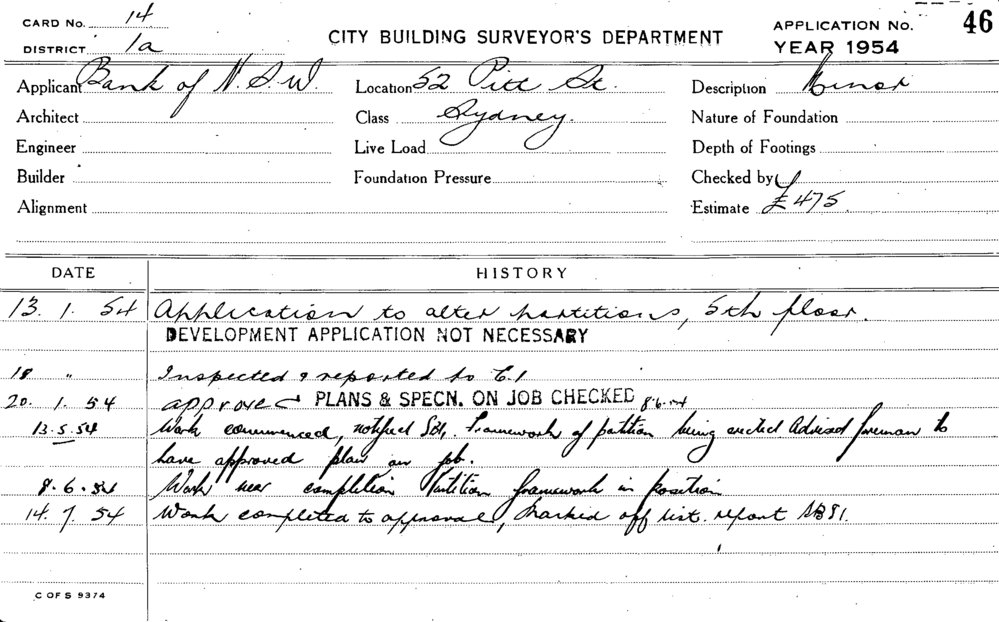 CARD NO. 14
DISTRICT 1a
CITY BUILDING SURVEYOR'S DEPARTMENT
APPLICATION NO. 46
YEAR 1954
Applicant Bank of N.S.W. Location 52 Pitt St. Description Minor
Architect Class Sydney. Nature of Foundation
Engineer Live Load Depth of Footings
Builder Foundation Pressure Checked by
Alignment Estimate £475.
DATE HISTORY
13. 1. 54 Application to alter partitions, 5th floor.
DEVELOPMENT APPLICATION NOT NECESSARY
18 " Inspected & reported to C.I
20. 1. 54 approved PLANS & SPECN. ON JOB CHECKED 8.6.54
13.5.54 Work commenced, notified Framework of patition being erected Advised foreman to
have approved plan on job.
8.6.54 Work near completion Partition framework in position
14.7.54 Work completed to approval, marked off list. report
C OF S 9374